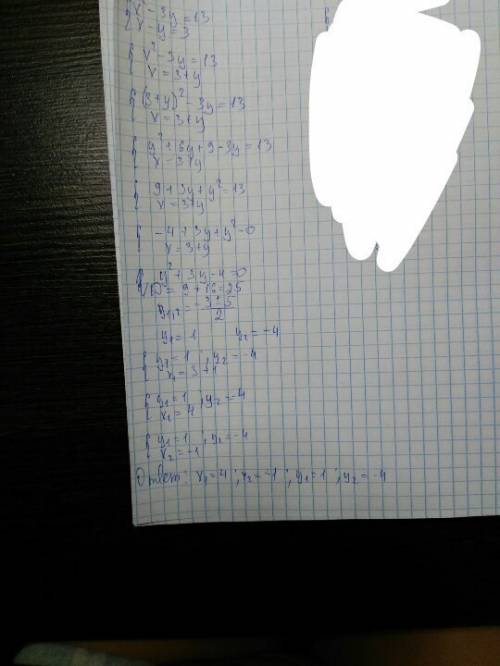 { x² - 3y = 13
x - y = 3
{ x² - 3y = 13
x = 3+y
{ (3+y)² - 3y = 13
x = 3+y
{ y² + 6y + 9 - 3y = 13
x = 3+y
{ 9 + 3y + y² = 13
x = 3+y
{ -4 + 3y + y² = 0
x = 3+y
{ y² + 3y - 4 = 0
√D = 9 + 16 = 25
y₁,₂ = -3±5 / 2
y₁ = 1 y₂ = -4
{ y₁ = 1 , y₂ = -4
x₁ = 3+1
{ y₁ = 1 , y₂ = -4
x₁ = 4
{ y₁ = 1 ; y₂ = -4
x₂ = -1
Ответ: x₁ = 4 ; x₂ = -1 ; y₁ = 1 ; y₂ = -4